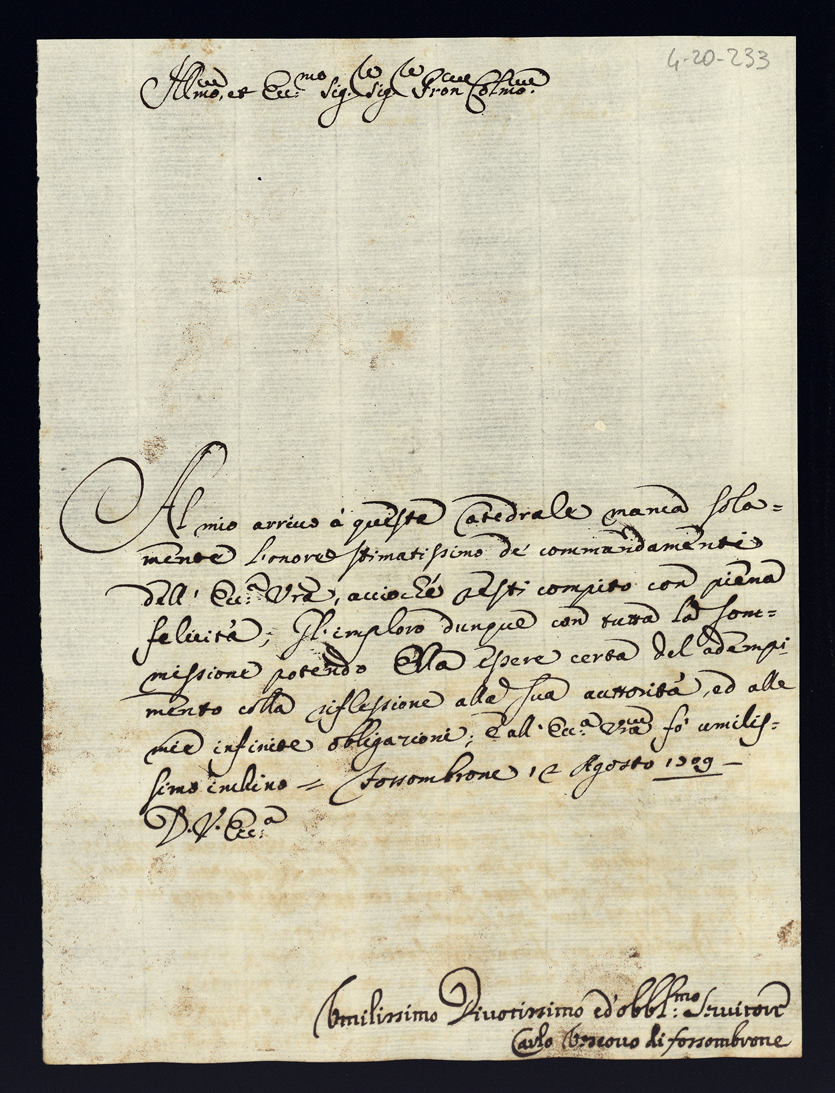 4-20-233
Ill.mo, et Ecc.mo Sig.re Sig.re Pron Col.mo
Al mio arrivo à questa Catedrale manca sola=
mente l'onore stimatissimo de' commandamenti
dell' Ecc.a Vra, acciochè resti compito con piena
felicità; Gl'imploro dunque con tutta la som=
missione potendo Ella essere certa del adempi
mento colla riflessione alla sua auttorità, ed alle
mie infinite obligazioni; E all' Ecc.a Vra fò umilis=
simo inchino = Fossombrone 12 Agosto 1709 –
D. V. Ecc.a
Umilissimo Divotissimo ed obbl.mo Servitore
Carlo Vescovo di fossombrone